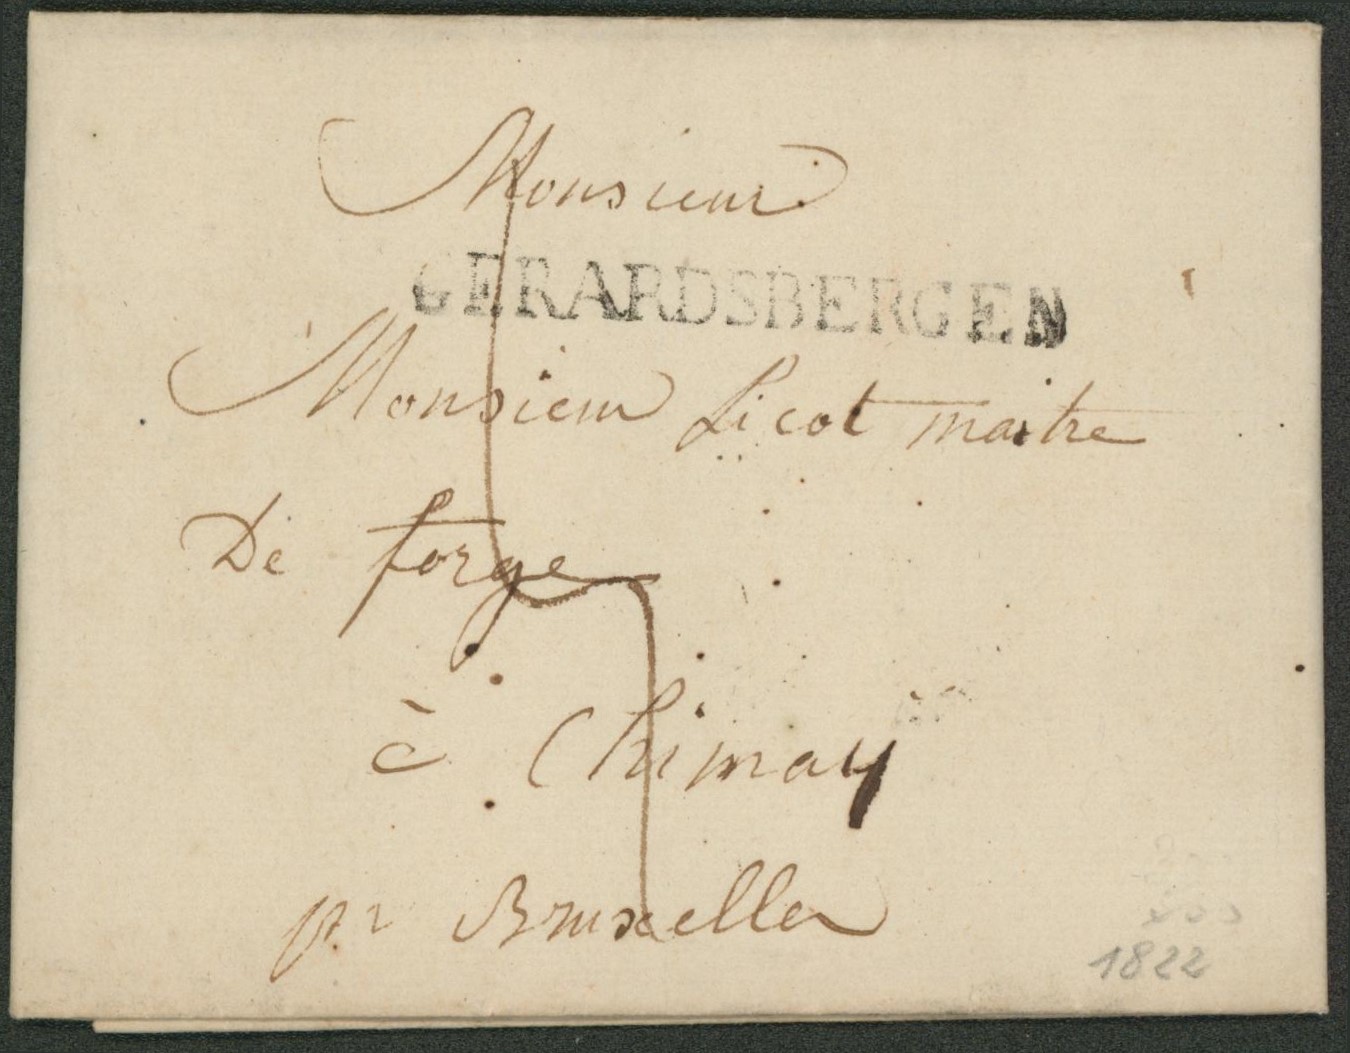 Monsieur
GERARDSBERGEN
Monsieur Licot maitre
De forge
à Chimay
pr Bruxelles
1822